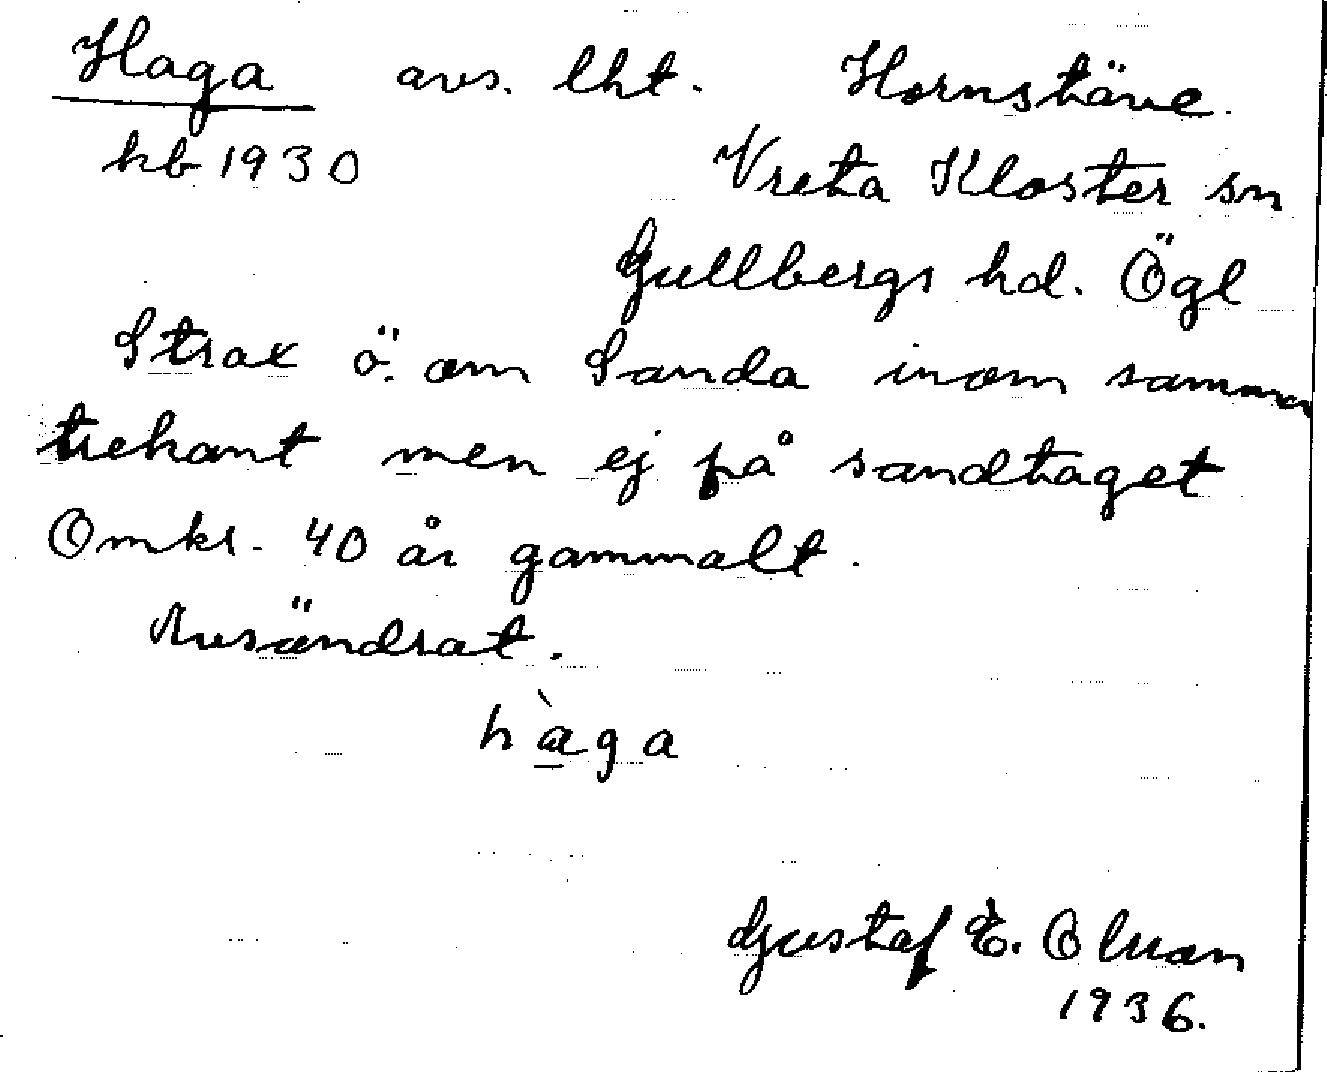 Haga avs. lht. Hornstäve.
kb 1930 Vreta Kloster sn
Gullbergs hd. Ögl
Strax ö. om Sanda inom samma
trekant men ej på sandtaget
Omkr. 40 år gammalt.
Avsändrat.
hàga
Gustaf E.
1936.